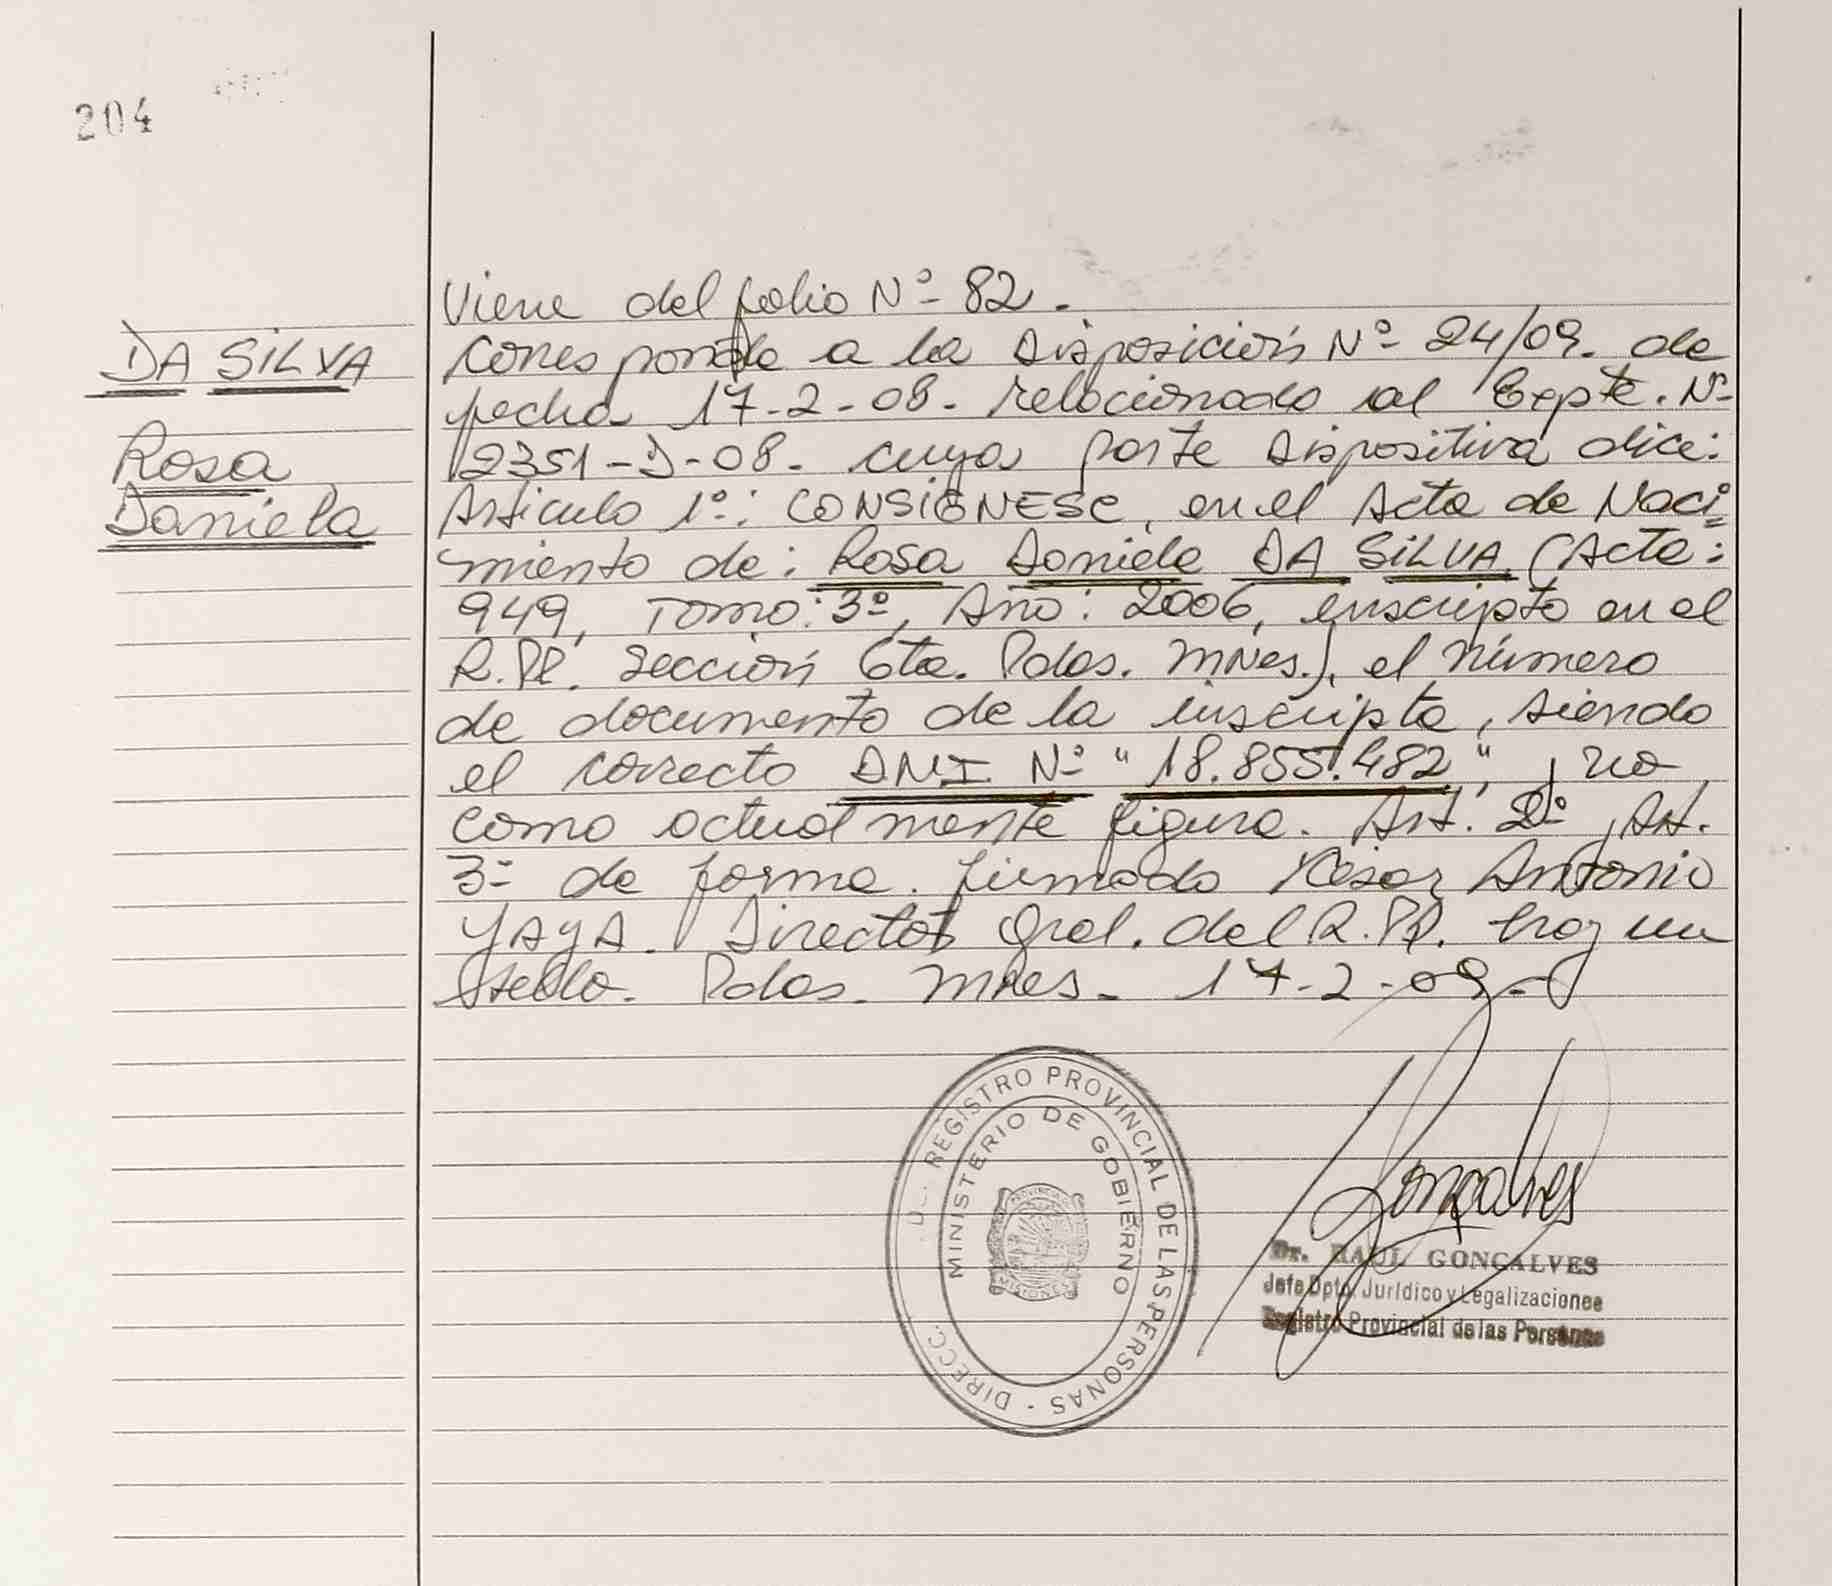 204
Viene del folio Nº 82.
DA SILVA
Rosa
Daniela
Corresponde a la Disposición Nº 24/09. de
fecha 17-2-08. relacionado al Expte. Nº
2351-D-08. cuya parte dispositiva dice:
Artículo 1º: CONSIGNESE, en el Acta de Naci=
miento de: Rosa Daniela DA SILVA (Acta:
949, Tomo: 3º, Año: 2006, inscripto en el
R.PP. Sección 6ta. Pdas. MNes.), el número
de documento de la inscripta, siendo
el correcto DNI Nº "18.855.482", y no
como actualmente figura. Art. 2º, Art.
3º de forma. firmado César Antonio
YAYA. Director Gral. del R.PP. hay un
sello. Pdas. Mnes. 17-2-09.-
REGISTRO PROVINCIAL DE LAS PERSONAS - DIRECC.
MINISTERIO DE GOBIERNO
Gonçalves
Dr. RAUL GONCALVES
Jefe Dpto. Jurídico y Legalizaciones
Registro Provincial de las Personas